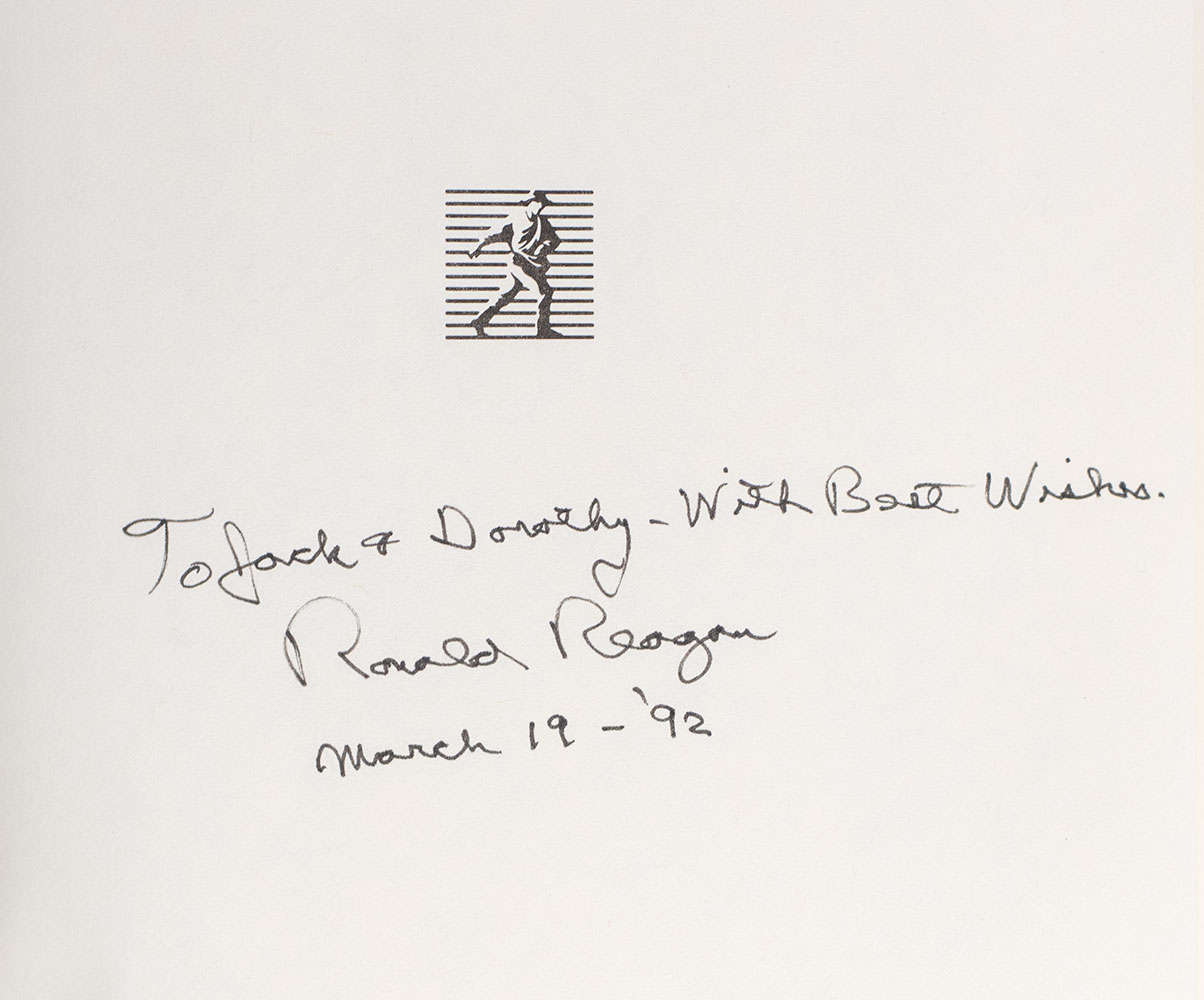 To Jack & Dorothy - With Best Wishes.
Ronald Reagan
March 19 - '92